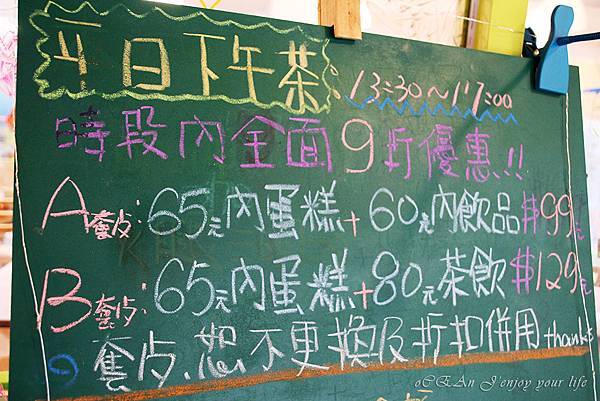 平日下午茶:13:30~17:00
時段內全面9折優惠!!
A套餐:65元內蛋糕+60元內飲品$99元
B套餐:65元內蛋糕+80元茶飲$129元
套餐,恕不更換及折扣併用thanks
oCEAn I'enjoy your life